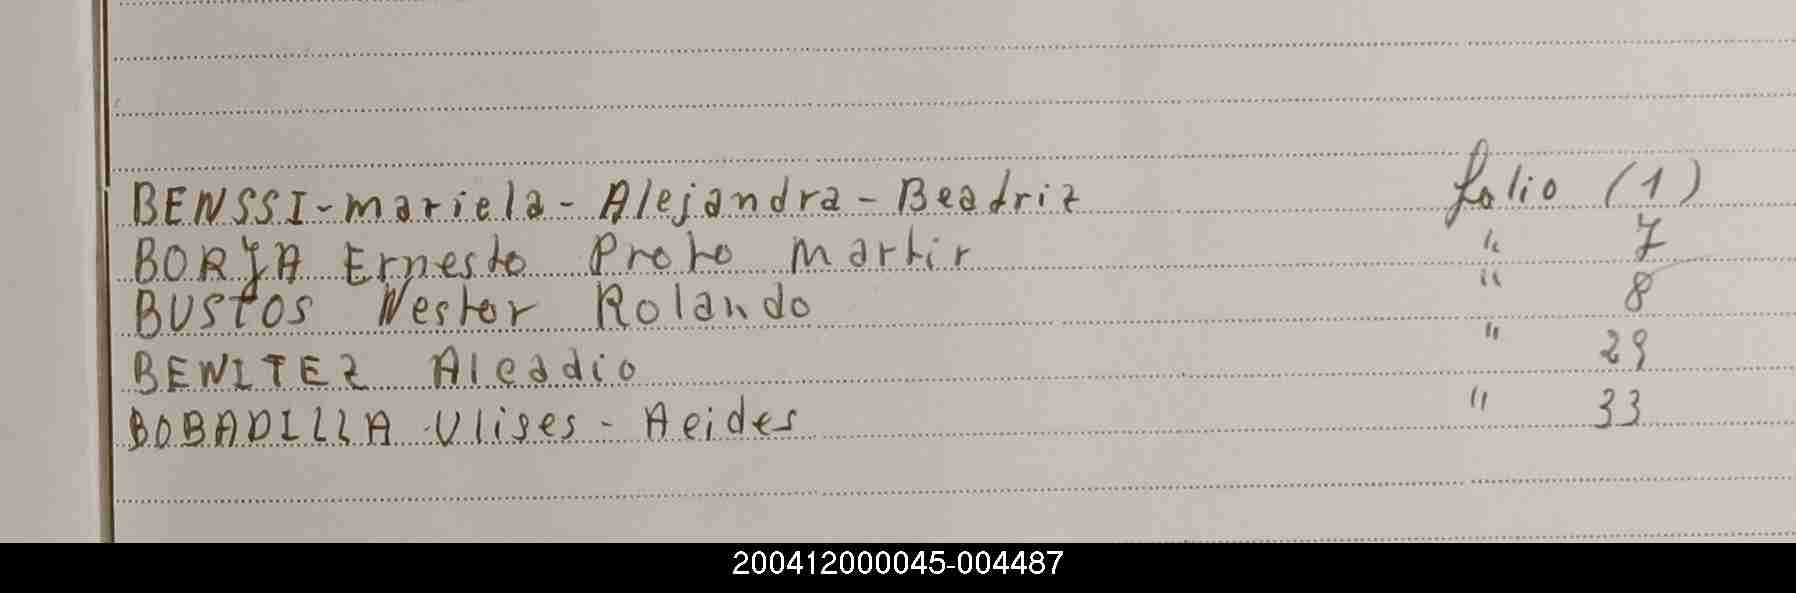 BENSSI-mariela-Alejandra-Beadriz folio (1)
BORJA Ernesto Proto Martir " 7
BUSTOS Nestor Rolando " 8
BENITEZ Aleadio " 29
BOBADILLA Ulises-Aeides " 33
200412000045-004487